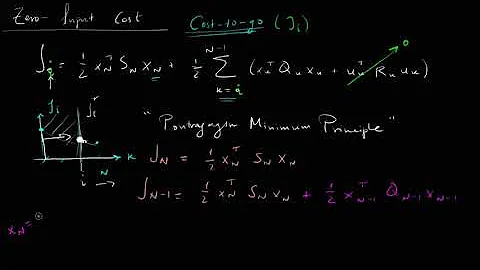 Zero-Input Cost Cost-to-go (Ji)
Ji = 1/2 xN^T SN xN + 1/2 Σ_{k=i}^{N-1} (xk^T Qk xk + uk^T Rk uk) 0
Ji Ji*
"Pontryagin Minimum Principle"
i N k
JN = 1/2 xN^T SN xN
JN-1 = 1/2 xN^T SN xN + 1/2 xN-1^T QN-1 xN-1
xN =